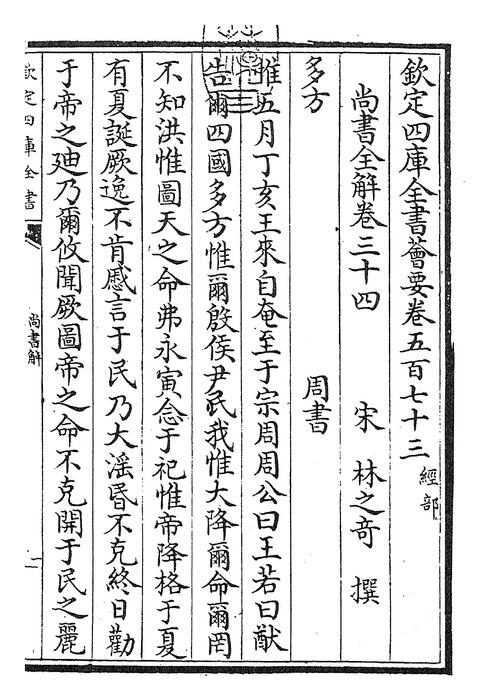 欽定四庫全書薈要卷五百七十三
經部
尚書全解卷三十四 宋 林之奇 撰
多方 周書
惟五月丁亥王來自奄至于宗周周公曰王若曰猷
告爾四國多方惟爾殷侯尹民我惟大降爾命爾罔
不知洪惟圖天之命弗永寅念于祀惟帝降格于夏
有夏誕厥逸不肯慼言于民乃大淫昏不克終日勸
于帝之廸乃爾攸聞厥圖帝之命不克開于民之麗
欽定四庫全書
尚書解
一